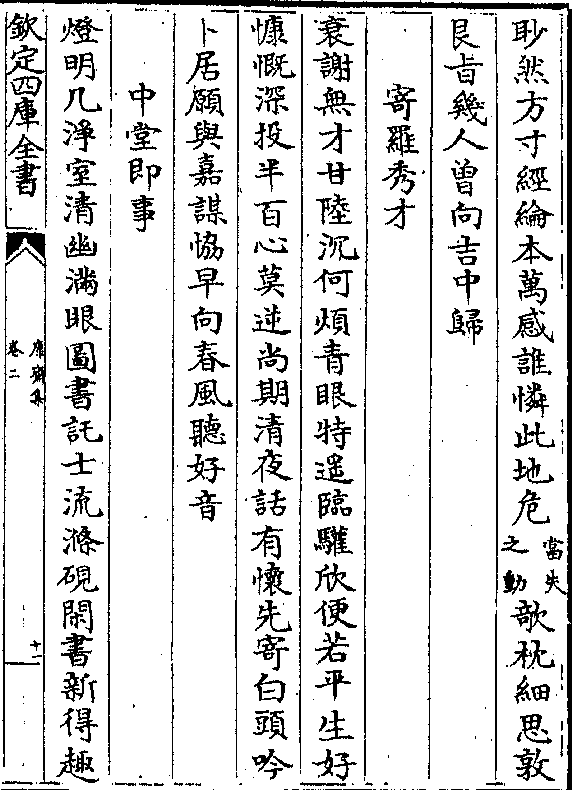 眇然方寸經綸本萬感誰憐此地危當失之動欹枕細思敦
艮旨幾人曾向吉中歸
寄羅秀才
衰謝無才甘陸沉何煩青眼特遥臨驩欣便若平生好
慷慨深投半百心莫逆尚期清夜話有懷先寄白頭吟
卜居願與嘉謀恊早向春風聽好音
中堂即事
燈明几淨室清幽滿眼圖書託士流滌硯閑書新得趣
欽定四庫全書
康齋集
卷二
十一